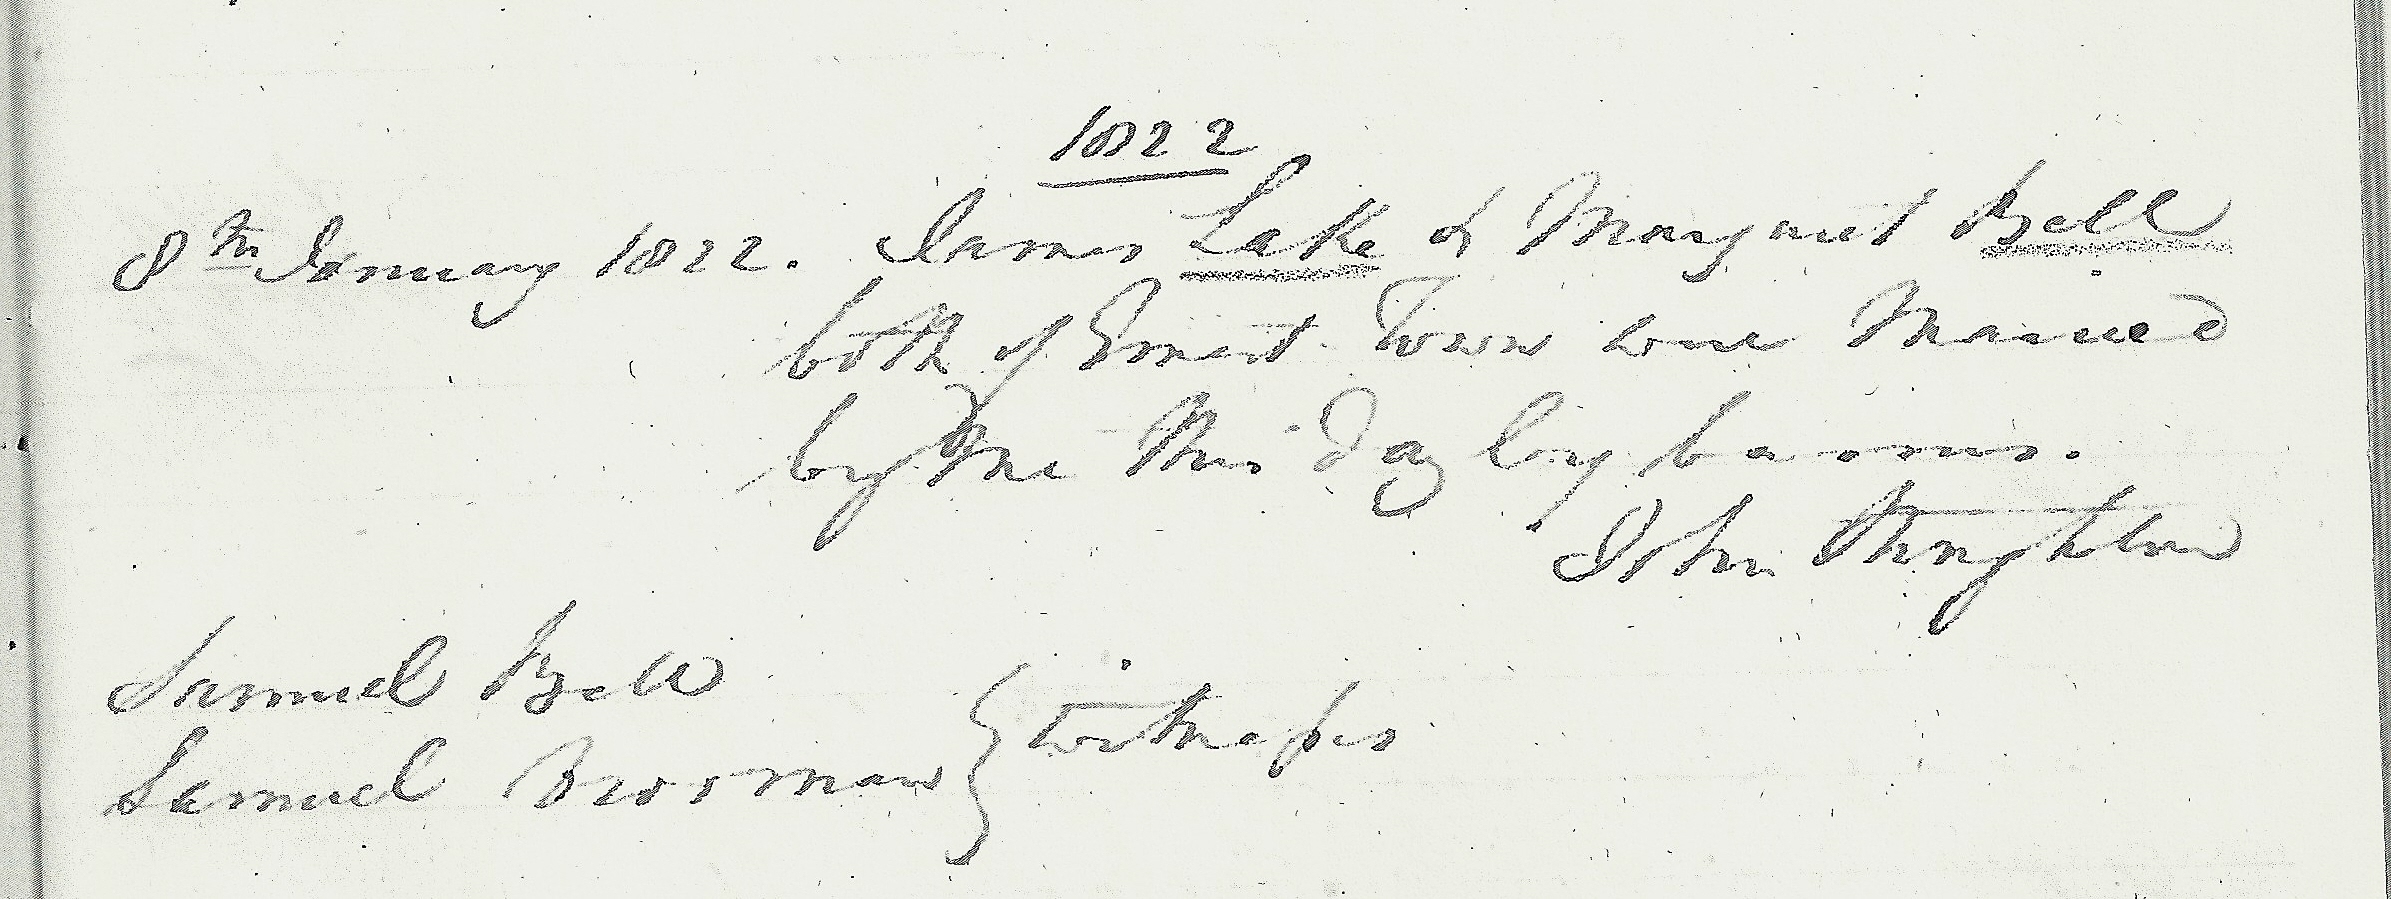 1822
8th January 1822. James Lake & Margaret Bell
both of Ernest Town were Married
by Me this day by banns.
John
Samuel Bell
Samuel
witnesses